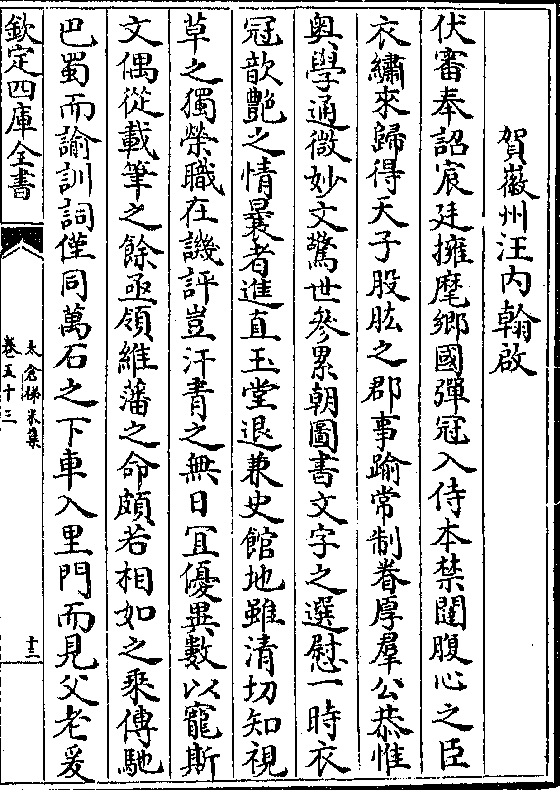 賀徽州汪内翰啟
伏審奉詔宸廷擁麾鄉國彈冠入侍本禁闥腹心之臣
衣繡來歸得天子股肱之郡事踰常制眷厚羣公恭惟
奥學通微妙文驚世參累朝圖書文字之選慰一時衣
冠歆艷之情曩者進直玉堂退兼史館地雖清切知視
草之獨榮職在譏評豈汗青之無日冝優異數以寵斯
文偶從載筆之餘亟領維藩之命頗若相如之乘傳馳
巴蜀而諭訓詞僅同萬石之下車入里門而見父老爰
欽定四庫全書
太倉稊米集
卷五十三
十三